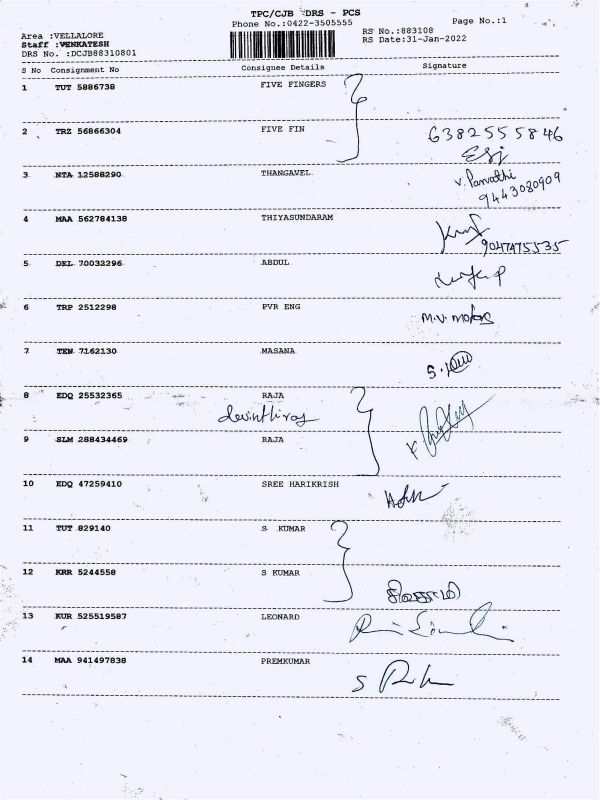 TPC/CJB DRS - PCS
Phone No.:0422-3505555 Page No.:1
Area :VELLALORE RS No.:883108
Staff :VENKATESH RS Date:31-Jan-2022
DRS No. :DCJB88310801
S No Consignment No Consignee Details Signature
1 TUT 5886738 FIVE FINGERS
2 TRZ 56866304 FIVE FIN 6382555846
3 NTA 12588290 THANGAVEL V. Parvathi
9443080909
4 MAA 562784138 THIYASUNDARAM
9047475535
5 DEL 70032296 ABDUL
6 TRP 2512298 PVR ENG M.V. motors
7 TEN 7162130 MASANA
8 EDQ 25532365 RAJA
9 SLM 288434469 RAJA
10 EDQ 47259410 SREE HARIKRISH
11 TUT 829140 S KUMAR
12 KRR 5244558 S KUMAR
13 KUR 525519587 LEONARD
14 MAA 941497838 PREMKUMAR